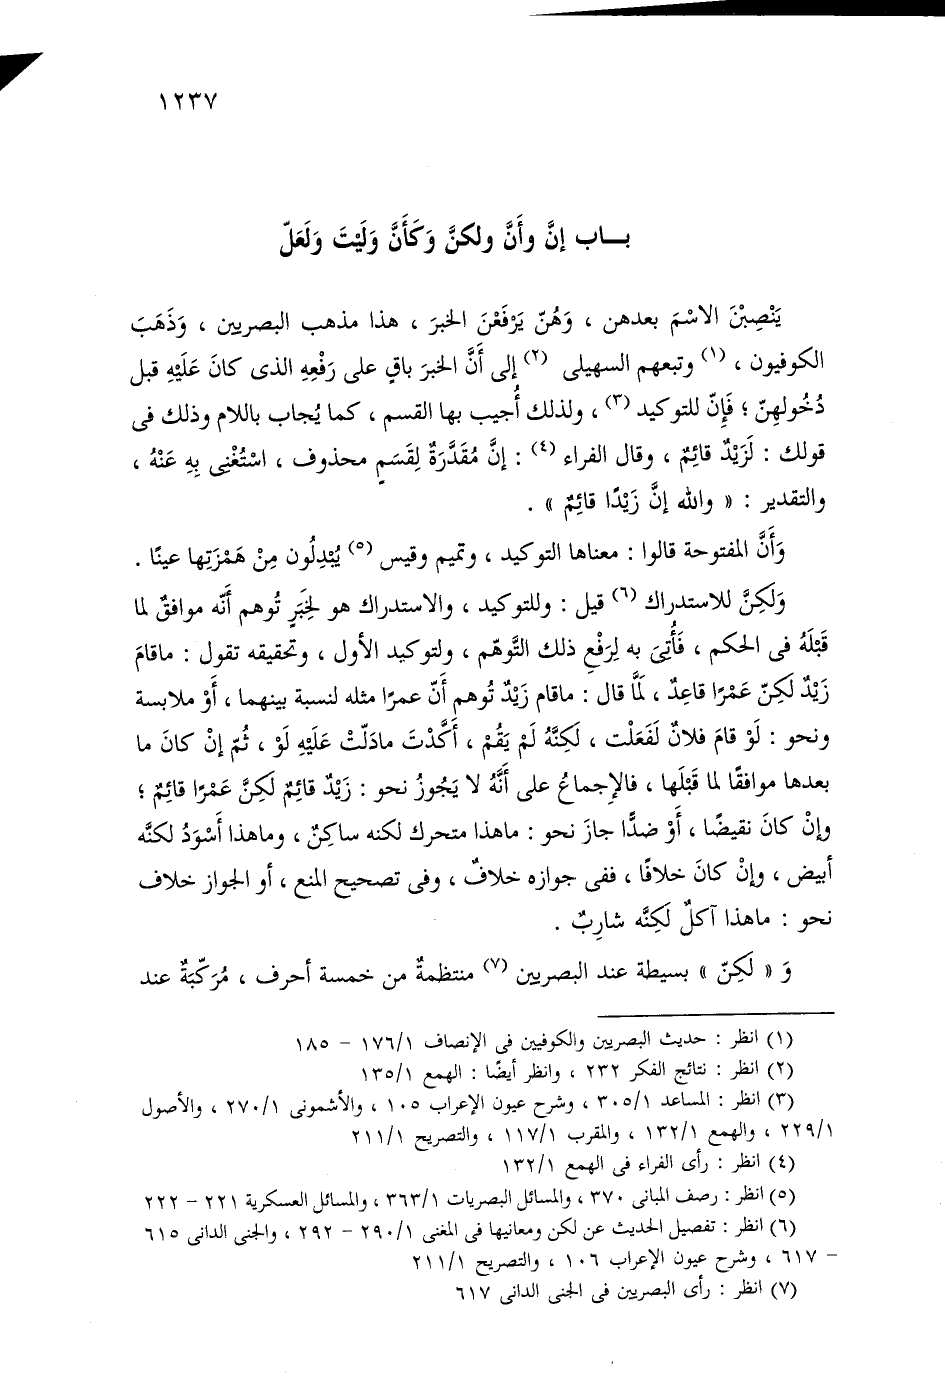 ١٢٣٧
بــاب إنَّ وأَنَّ ولكنَّ وَكَأَنَّ وَلَيْتَ وَلَعَلّ
يَنْصِبْنَ الاسْمَ بعدهن ، وَهُنّ يَرْفَعْنَ الخبرَ ، هذا مذهب البصريين ، وَذَهَبَ
الكوفيون ، (١) وتبعهم السهيلى (٢) إلى أَنَّ الخبرَ باقٍ على رَفْعِهِ الذى كانَ عَلَيْهِ قبل
دُخُولهِنّ ؛ فَإِنّ للتوكيد (٣) ، ولذلك أُجيب بها القسم ، كما يُجاب باللام وذلك فى
قولك : لَزَيْدٌ قائِمٌ ، وقال الفراء (٤) : إنَّ مُقَدَّرَةٌ لِقَسَمٍ محذوف ، اسْتُغْنِى بِهِ عَنْهُ ،
والتقدير : « والله إنَّ زَيْدًا قائِمٌ » .
وَأَنَّ المفتوحة قالوا : معناها التوكيد ، وتميم وقيس (٥) يُبْدِلُون مِنْ هَمْزَتِها عينًا .
وَلَكِنَّ للاستدراك (٦) قيل : وللتوكيد ، والاستدراك هو لِخَبَرٍ تُوهم أنّه موافقٌ لما
قَبْلَهُ فى الحكم ، فَأُتِىَ به لِرَفْعِ ذلك التَّوهّم ، ولتوكيد الأول ، وتحقيقه تقول : ماقامَ
زَيْدٌ لَكِنّ عَمْرًا قاعِدٌ ، لَمَّا قال : ماقام زَيْدٌ تُوهم أَنّ عمرًا مثله لنسبة بينهما ، أَوْ ملابسة
ونحو : لَوْ قامَ فلانٌ لَفَعَلْت ، لَكِنَّهُ لَمْ يَقُمْ ، أَكَّدْتَ مادَلّتْ عَلَيْهِ لَوْ ، ثُمّ إنْ كانَ ما
بعدها موافقًا لما قَبْلَها ، فالإجماعُ على أَنَّهُ لا يَجُوزُ نحو : زَيْدٌ قائِمٌ لَكِنَّ عَمْرًا قائِمٌ ؛
وإنْ كانَ نقيضًا ، أَوْ ضدًّا جازَ نحو : ماهذا متحرك لكنه ساكِنٌ ، وماهذا أَسْوَدُ لكنَّه
أبيض ، وإنْ كانَ خلافًا ، ففى جوازه خلافٌ ، وفى تصحيح المنع ، أو الجواز خلاف
نحو : ماهذا آكلٌ لَكِنَّه شارِبٌ .
وَ « لَكِنّ » بسيطة عند البصريين (٧) منتظمةٌ من خمسة أحرف ، مُرَكّبَةٌ عند
(١) انظر : حديث البصريين والكوفيين فى الإنصاف ١٧٦/١ – ١٨٥
(٢) انظر : نتائج الفكر ٢٣٢ ، وانظر أيضًا : الهمع ١٣٥/١
(٣) انظر : المساعد ٣٠٥/١ ، وشرح عيون الإعراب ١٠٥ ، والأشمونى ٢٧٠/١ ، والأصول
٢٢٩/١ ، والهمع ١٣٢/١ ، والمقرب ١١٧/١ ، والتصريح ٢١١/١
(٤) انظر : رأى الفراء فى الهمع ١٣٢/١
(٥) انظر : رصف المبانى ٣٧٠ ، والمسائل البصريات ٣٦٣/١ ، والمسائل العسكرية ٢٢١ – ٢٢٢
(٦) انظر : تفصيل الحديث عن لكن ومعانيها فى المغنى ٢٩٠/١ – ٢٩٢ ، والجنى الدانى ٦١٥
– ٦١٧ ، وشرح عيون الإعراب ١٠٦ ، والتصريح ٢١١/١
(٧) انظر : رأى البصريين فى الجنى الدانى ٦١٧